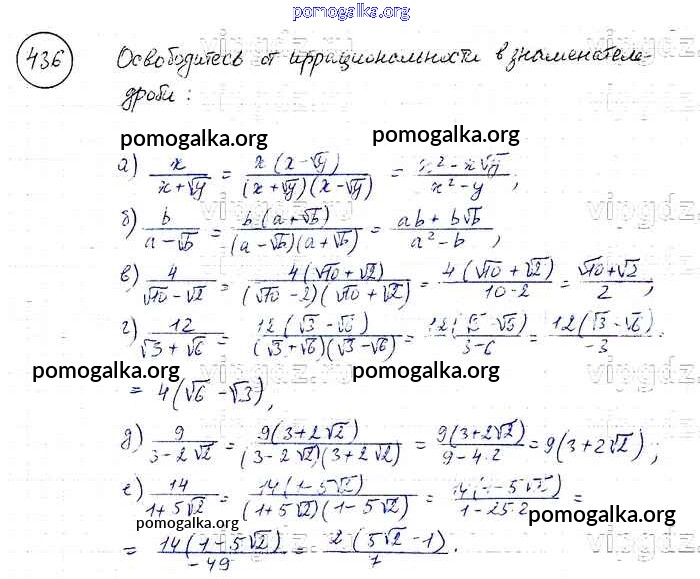 pomogalka.org
436 Освободитесь от иррациональности в знаменателе
дроби:
pomogalka.org pomogalka.org
а) x/(x+√y) = x(x-√y)/((x+√y)(x-√y)) = (x²-x√y)/(x²-y),
vipgdz.ru vipgdz.ru
б) b/(a-√b) = b(a+√b)/((a-√b)(a+√b)) = (ab+b√b)/(a²-b),
в) 4/(√10-√2) = 4(√10+√2)/((√10-2)(√10+√2)) = 4(√10+√2)/(10-2) = (√10+√2)/2;
г) 12/(√3+√6) = 12(√3-√6)/((√3+√6)(√3-√6)) = 12(√3-√6)/(3-6) = 12(√3-√6)/-3
pomogalka.org pomogalka.org
= 4(√6-√3),
д) 9/(3-2√2) = 9(3+2√2)/((3-2√2)(3+2√2)) = 9(3+2√2)/(9-4·2) = 9(3+2√2);
е) 14/(1+5√2) = 14(1-5√2)/((1+5√2)(1-5√2)) = 14(1-5√2)/(1-25·2) =
pomogalka.org pomogalka.org
= 14(1-5√2)/-49 = 2(5√2-1)/7.